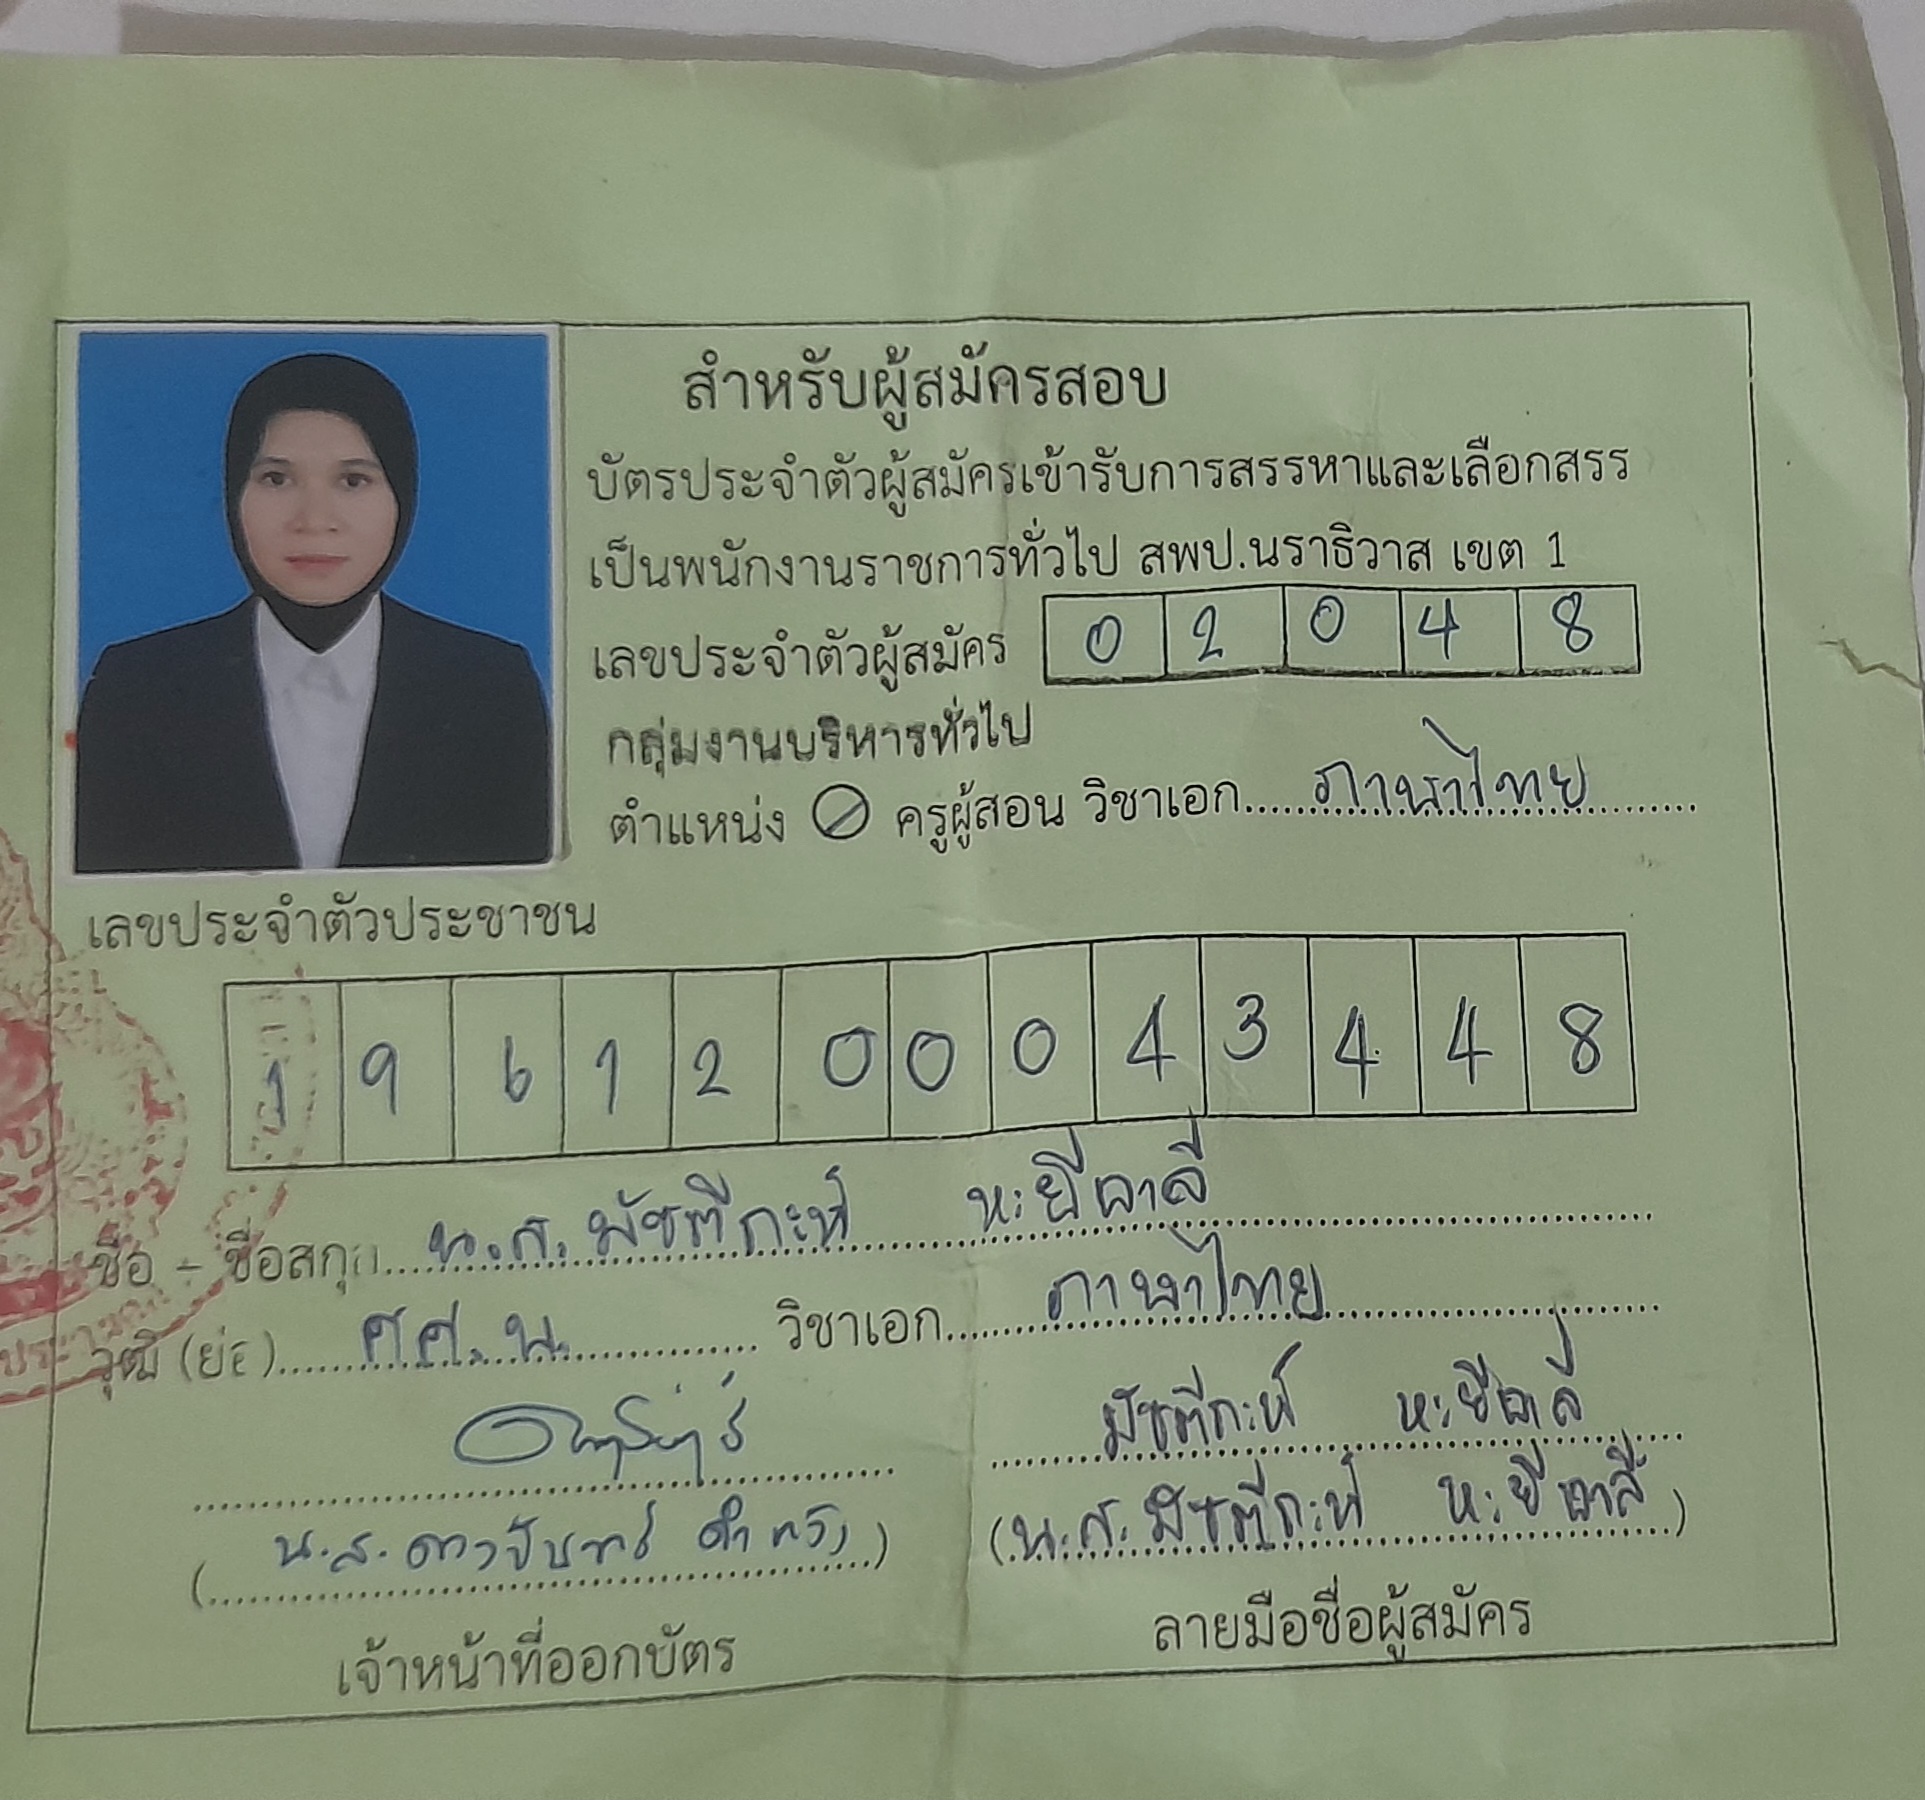 สำหรับผู้สมัครสอบ
บัตรประจำตัวผู้สมัครเข้ารับการสรรหาและเลือกสรร
เป็นพนักงานราชการทั่วไป สพป.นราธิวาส เขต 1
เลขประจำตัวผู้สมัคร 0 2 0 4 8
กลุ่มงานบริหารทั่วไป
ตำแหน่ง ครูผู้สอน วิชาเอก ภาษาไทย
เลขประจำตัวประชาชน
1 9 6 1 2 0 0 0 4 3 4 4 8
ชื่อ - ชื่อสกุล น.ส. มัซตีกะห์ หะยีอาลี
วุฒิ (ย่อ) ศศ.บ. วิชาเอก ภาษาไทย
มัซตีกะห์ หะยีอาลี
(น.ส. ดวงจันทร์) (น.ส. มัซตีกะห์ หะยีอาลี)
เจ้าหน้าที่ออกบัตร ลายมือชื่อผู้สมัคร